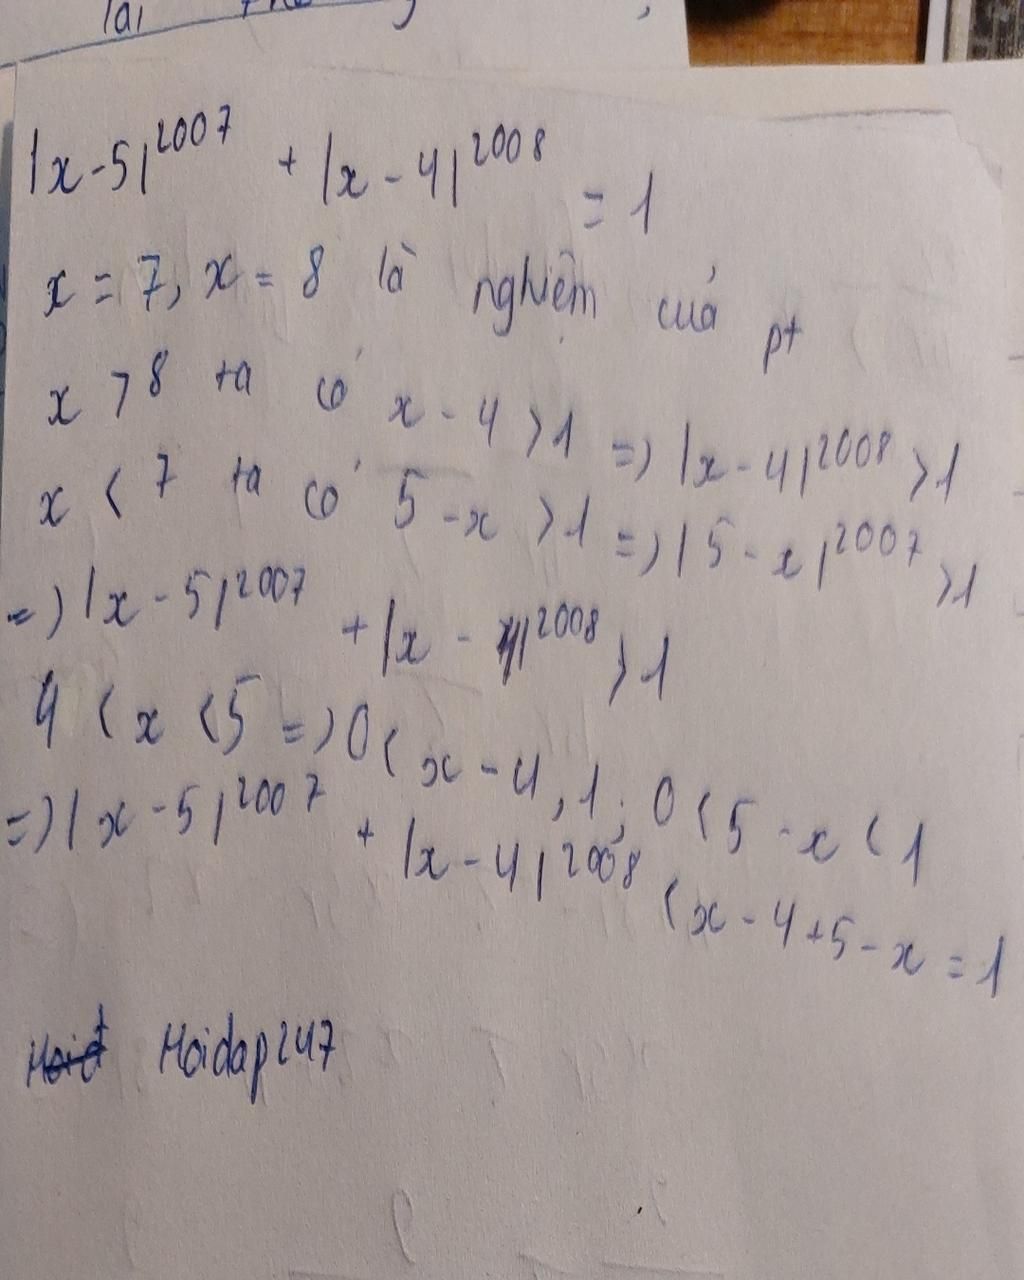 lại
|x-5|^2007 + |x-4|^2008 = 1
x = 7, x = 8 là nghiệm của pt
x > 8 ta có x - 4 > 1 => |x-4|^2008 > 1
x < 7 ta có 5 - x > 1 => |5-x|^2007 > 1
=> |x-5|^2007 + |x-4|^2008 > 1
4 < x < 5 => 0 < x - 4, 1; 0 < 5 - x < 1
=> |x-5|^2007 + |x-4|^2008 < x - 4 + 5 - x = 1
Hoidap247